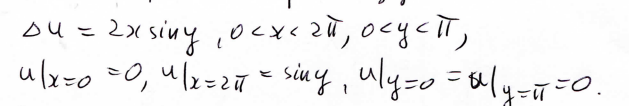 Δu = 2x sin y , 0<x<2π, 0<y<π,
u|x=0 =0, u|x=2π = sin y, u|y=0 = u|y=π =0.